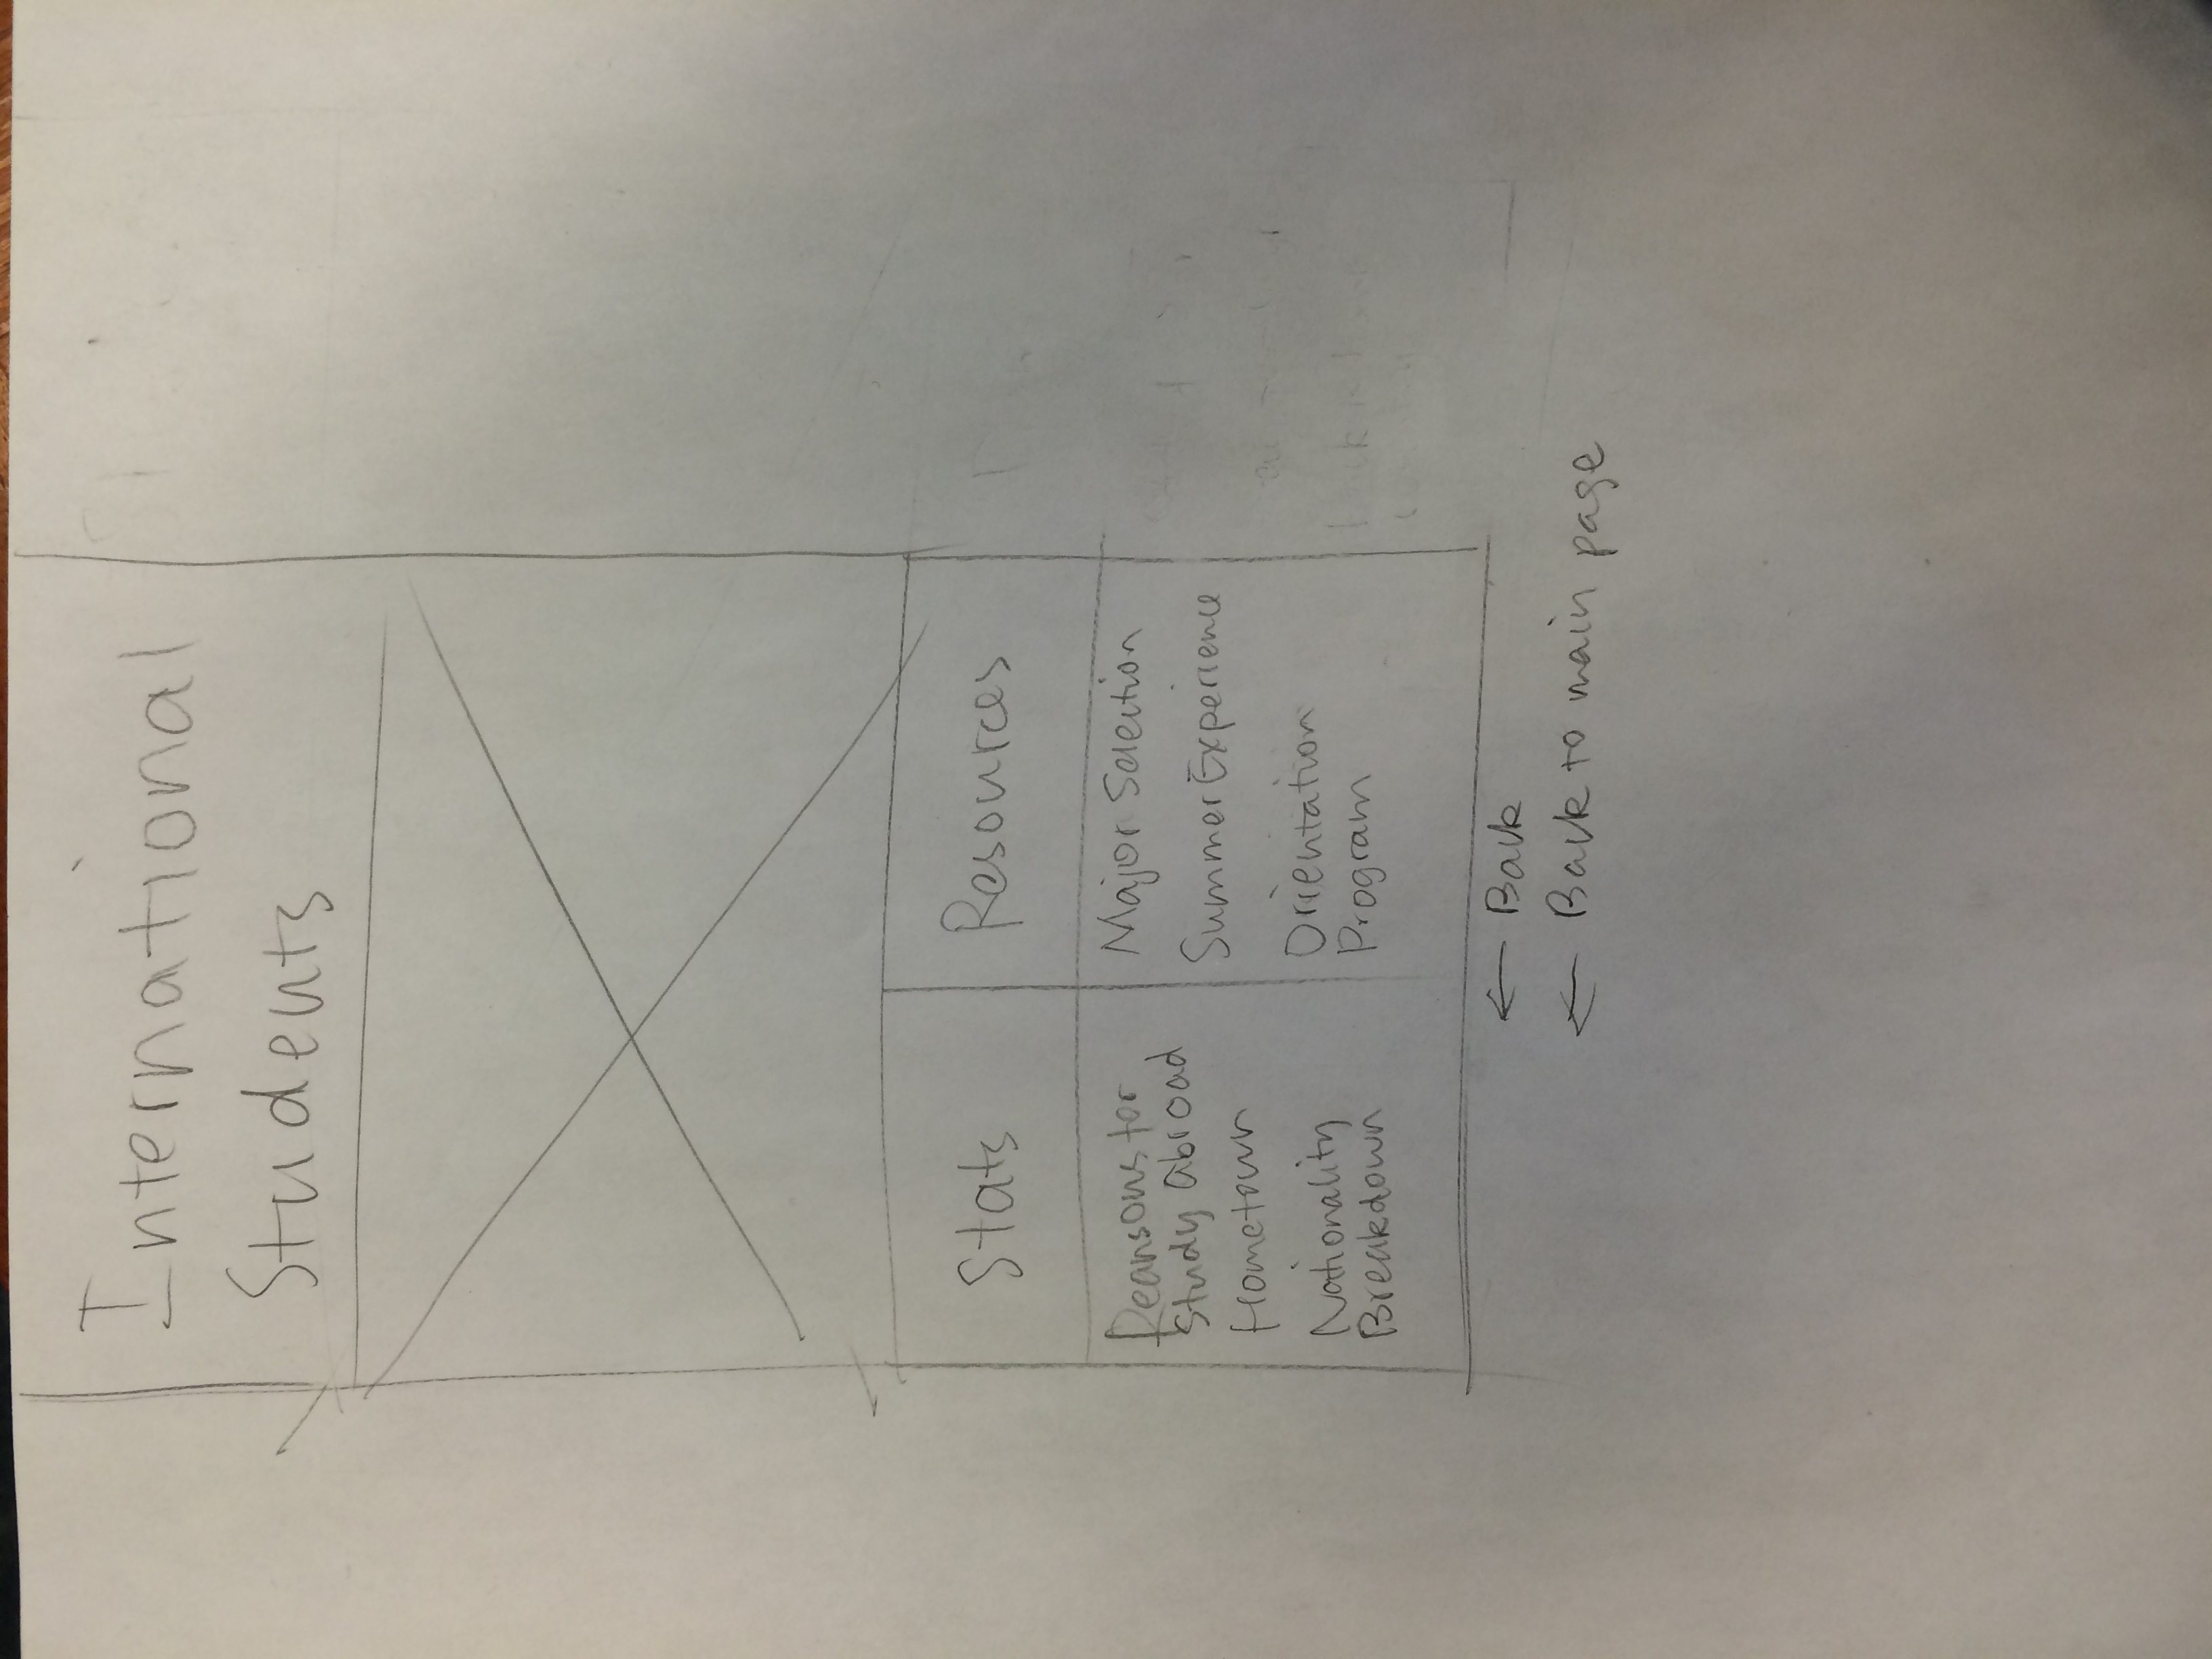 International
Students
Stats
Resources
Reasons for
Study abroad
Hometown
Nationality
Breakdown
Major Selection
Summer Experience
Orientation
Program
← Back
← Back to main page